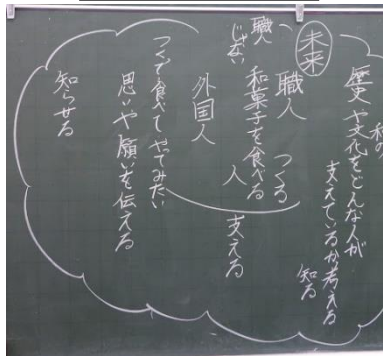 和の
歴史や文化をどんな人が
支えているか考える
知る
未来
職人 つくる
職人
じゃない
和菓子を食べる
人 支える
外国人
つくって食べてやってみたい
思いや願いを伝える
知らせる